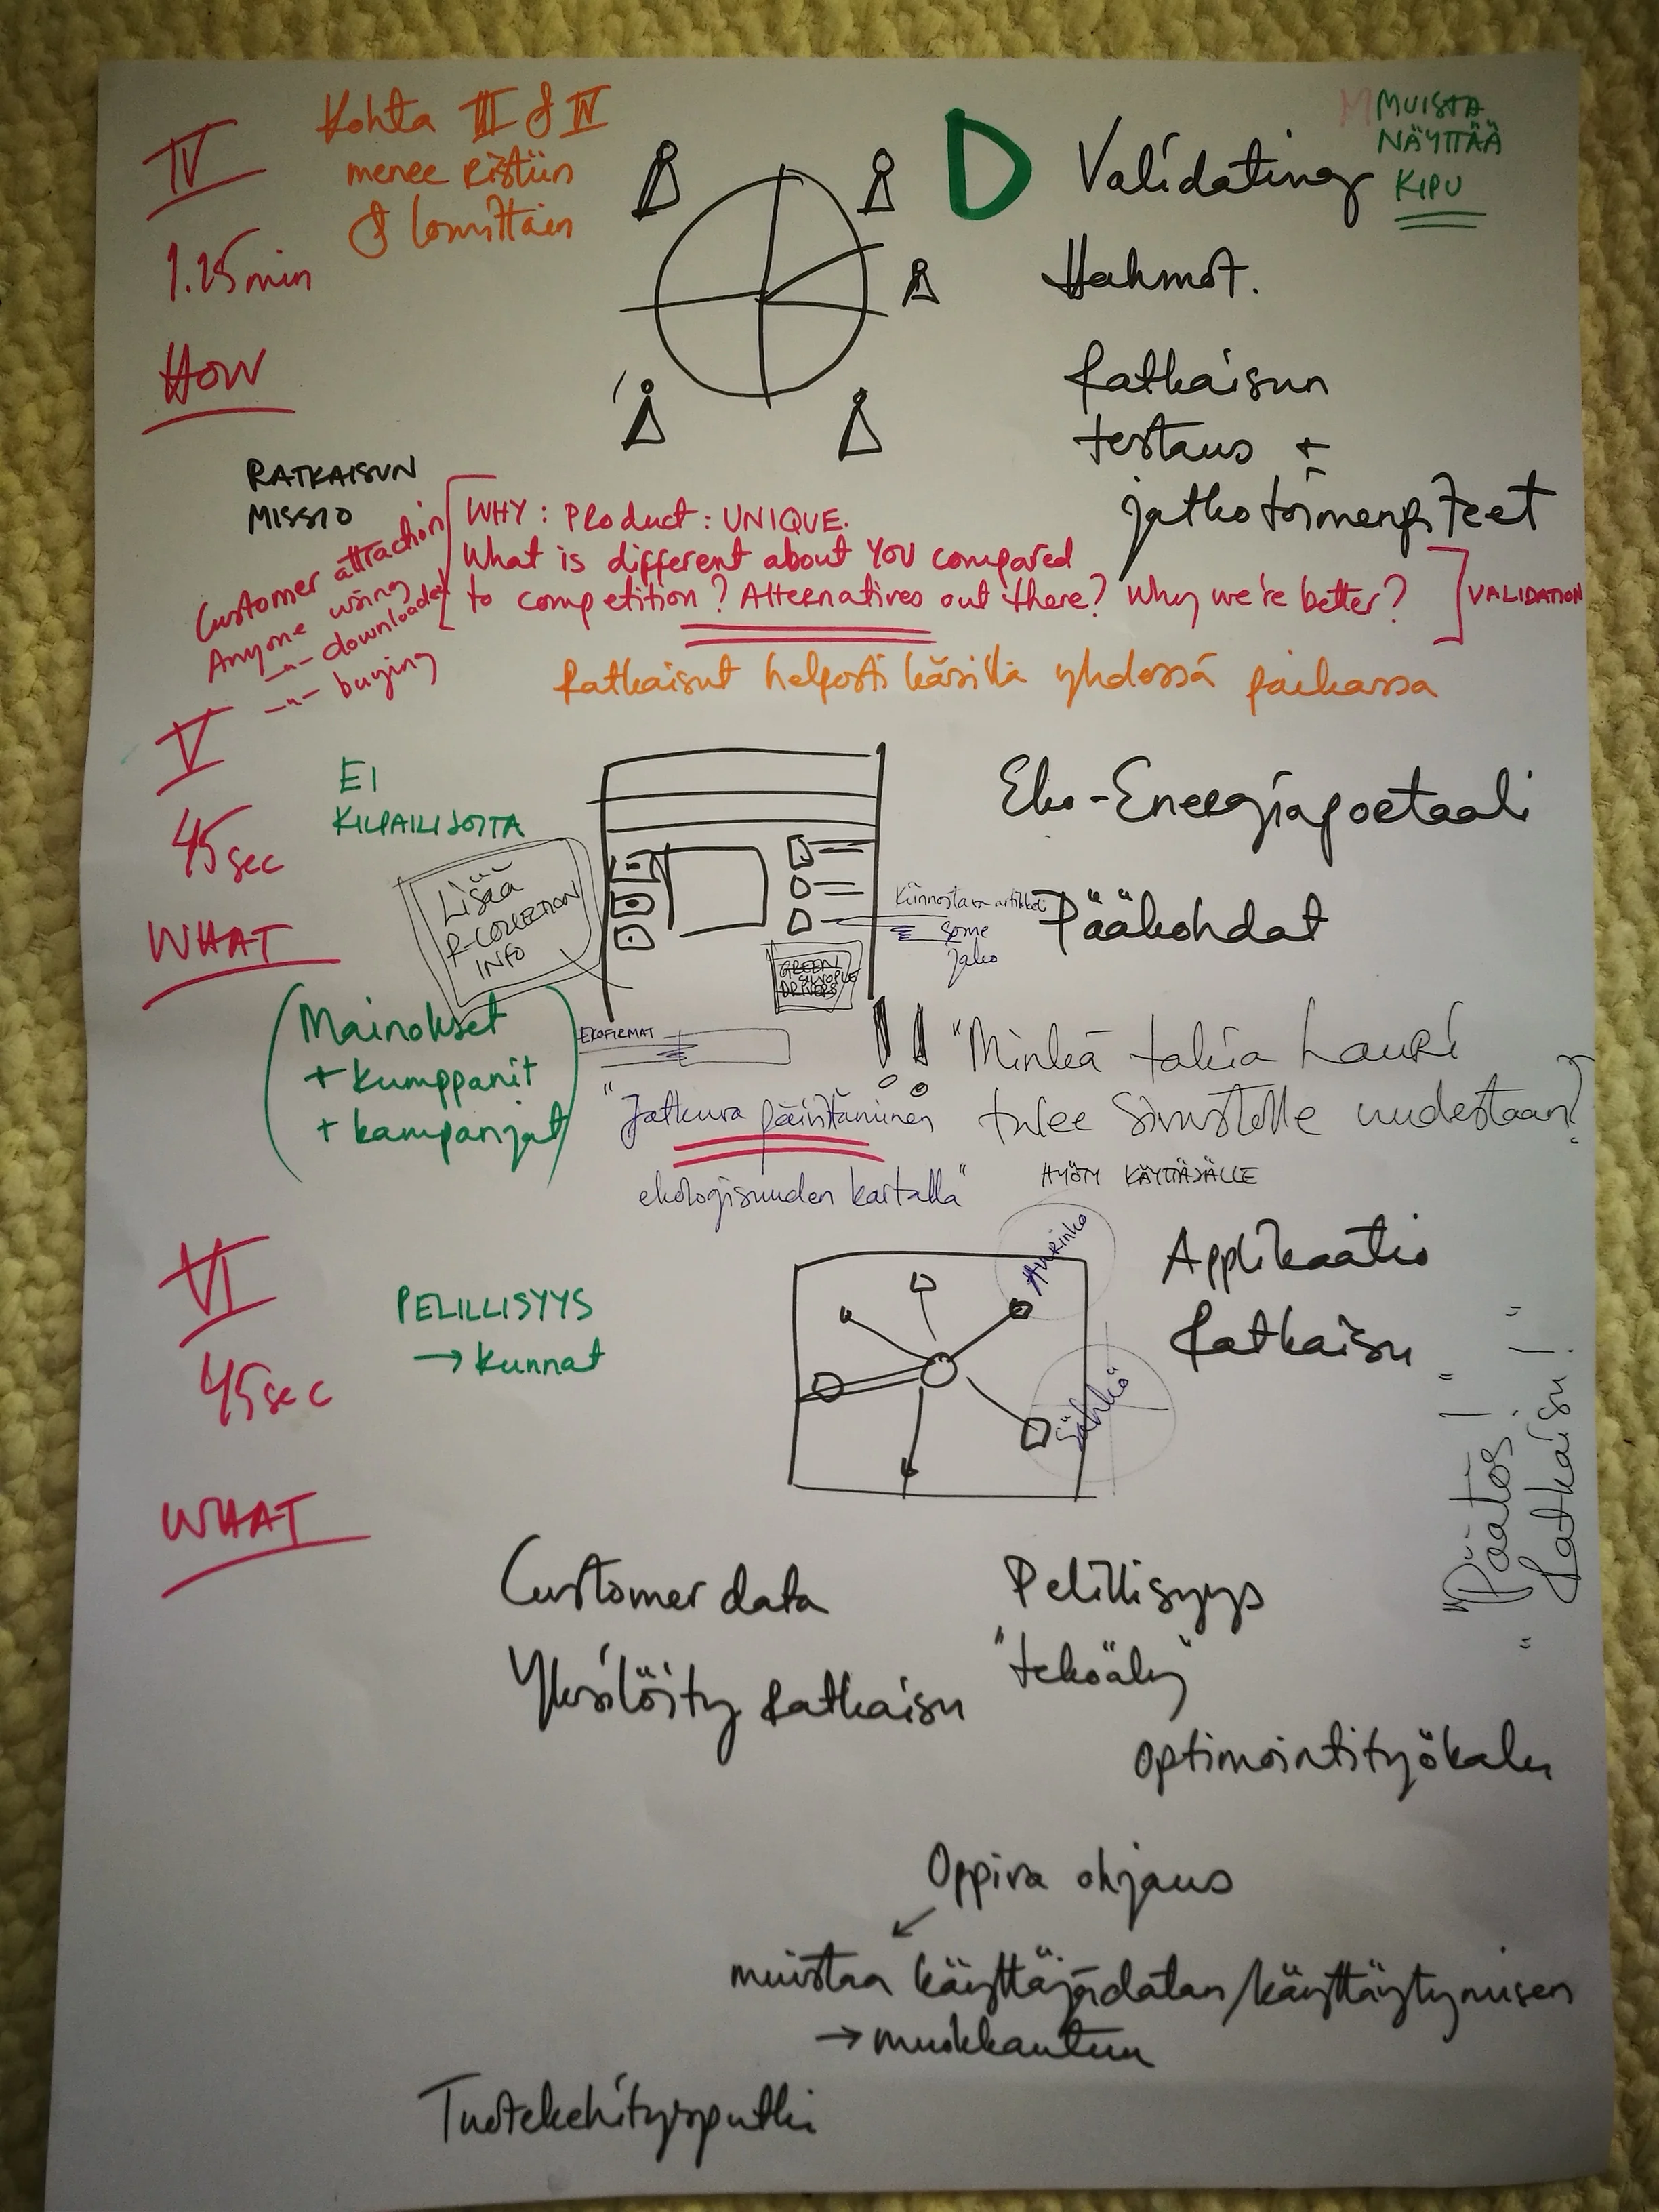 IV
Kohta III & IV
menee ristiin
& lomittain
1.15min
HOW
D
Validating
MUISTA
NÄYTTÄÄ
KIPU
Hahmot.
Ratkaisun
testaus +
jatkotoimenpiteet
RATKAISUN
MISSIO
Customer attraction
Anyone using
-"- downloaded
-"- buying
WHY: Product: UNIQUE.
What is different about YOU compared
to competition? Alternatives out there? Why we're better?
VALIDATION
Ratkaisut helposti käsillä yhdessä paikassa
V
45sec
WHAT
EI
KILPAILIJOITA
Lisää
R-COLLECTION
INFO
Eko-Energiaportaali
Pääkohdat
Kiinnostava artikkeli
some
jako
GREEN
DRIVERS
(Mainokset
+ kumppanit
+ kampanjat)
EKOFIRMAT
!! "Minkä takia Lauri
tulee sivustolle uudestaan?
"Jatkuva päivittäminen
ekologisuuden kartalla"
HYÖTY KÄYTTÄJÄLLE
VI
45sec
WHAT
PELILLISYYS
→ kunnat
Aurinko
Sähkö
Applikaatio
Ratkaisu
"Päätös!"
"Ratkaisu!"
Customer data
Yksilöity ratkaisu
Pelillisyys
"tekoäly"
optimointityökalu
Oppiva ohjaus
muistaa käyttäjädatan/käyttäytymisen
→ muokkautuu
Tuotekehitysputki